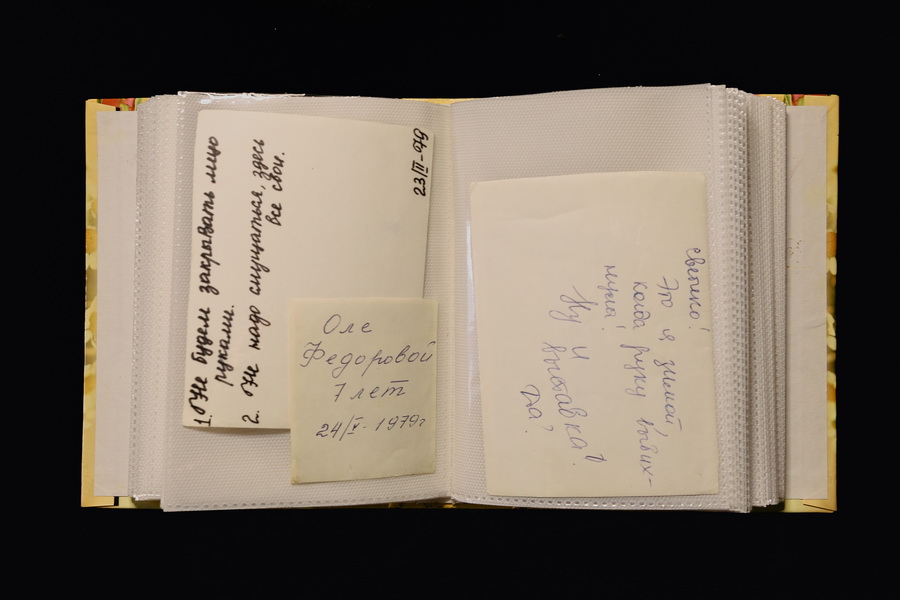 1. Не будем закрывать лицо
руками.
2. Не надо смущаться, здесь
все свои.
23/II-979
Оле
Федоровой
7 лет
24/V-1979г
Светико!
Это я зимой,
когда руку вывих-
нула!
Ну и выставка!
Да?